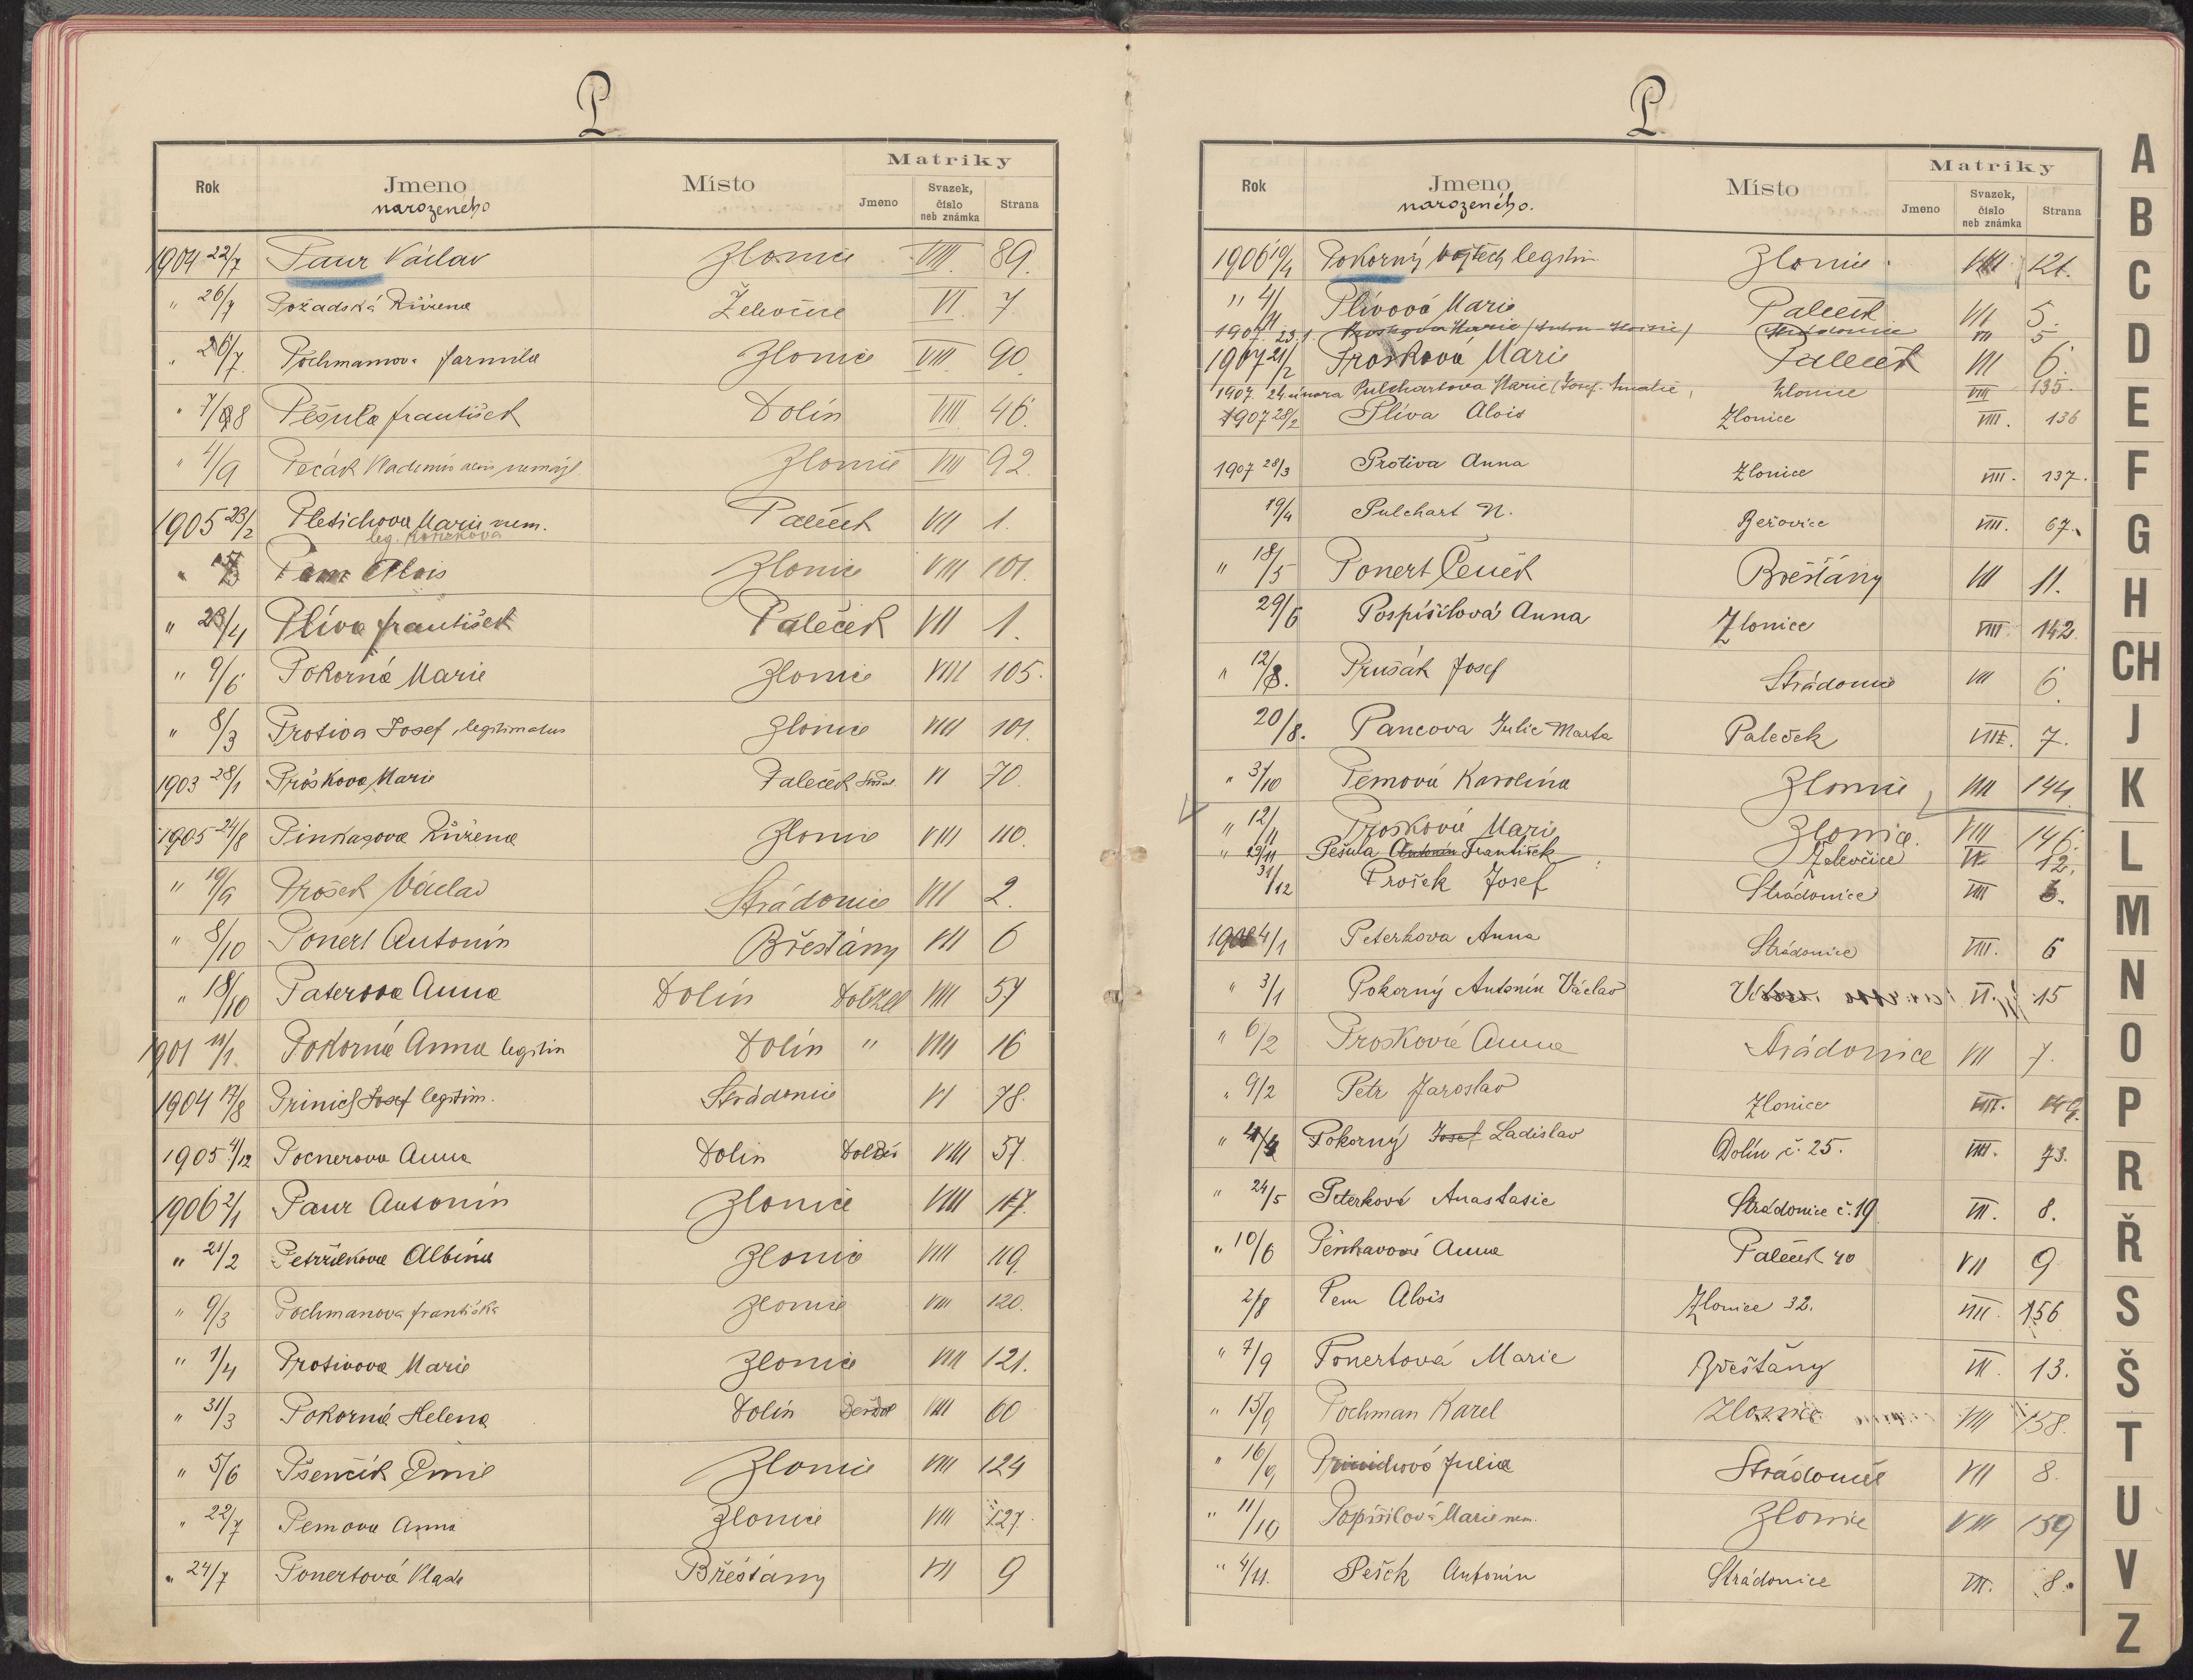 P
Matriky
Rok Jmeno Místo Jmeno Svazek, číslo neb známka Strana
narozeného
1904 22/7 Paur Václav Zlonice VIII. 89.
" 26/7 Požadská Růžena Želevčice VI. 7.
" 26/7 Pochmanova Jarmila Zlonice VIII. 90.
" 7/8 Pěšula František Dolín VIII. 46.
" 4/9 Pecák Vladimír nemanž. Zlonice VIII 92.
1905 23/2 Pletichova Marie nem. Paleček VII 1.
leg.
" Pem Alois Zlonice VIII 101.
" 23/4 Plíva František Paleček VII 1.
" 9/6 Pokorná Marie Zlonice VIII 105.
" 8/3 Protiva Josef, legitimatus Zlonice VIII 101.
1903 28/1 Prošková Marie Paleček VI 70.
1905 24/8 Pinkasova Růžena Zlonice VIII 110.
" 19/9 Prošek Václav Strádonice VII 2.
" 8/10 Ponert Antonín Břešťany VII 6
" 18/10 Paterova Anna Dolín VIII 57
1901 11/1 Pokorná Anna legitim Dolín " VIII 16
1904 17/8 Prinich Josef legitim. Strádonice VI 78.
1905 4/12 Pocnerova Anna Dolín VIII 57.
1906 2/1 Paur Antonín Zlonice VIII 117.
" 21/2 Petržilkova Albína Zlonice VIII 119.
" 9/3 Pochmanova Františka Zlonice VIII 120.
" 1/4 Protivova Marie Zlonice VIII 121.
" 31/3 Pokorná Helena Dolín VIII 60
" 5/6 Pšenčík Emil Zlonice VIII 124
" 22/7 Pemova Anna Zlonice VIII 127.
" 24/7 Ponertová Vlasta Břešťany VII 9
P
Matriky
Rok Jmeno Místo Jmeno Svazek, číslo neb známka Strana
narozeného.
1906 19/4 Pokorný Vojtěch legitim Zlonice VIII 121.
" 4/11 Plívová Marie Paleček VII 5.
1907. 23.1. Proskova Marie Strádonice VII 5
1907 21/2 Prosková Marie Paleček VII 6.
1907. 24. února Pulchartova Marie (Josef. Amalie) Zlonice VIII 135.
1907 28/2 Plíva Alois Zlonice VIII. 136
1907 28/3 Protiva Anna Zlonice VIII. 137.
19/4 Pulchart N. Beřovice VIII. 67.
" 18/5 Ponert Čeněk Břešťany VII 11.
29/6 Pospíšilová Anna Zlonice VIII 142.
" 12/8. Prušák Josef Strádonice VII 6.
20/8. Pancova Julie Marta Paleček VII. 7.
" 31/10 Pemová Karolína Zlonice VIII 144.
" 12/11 Prosková Marie Zlonice. VIII 146.
" 29/11 Pešula Antonín František Želevčice VI 12.
31/12 Prošek Josef Strádonice VII 6.
1908 4/1 Peterkova Anna Strádonice VII. 6
" 3/1 Pokorný Antonín Václav VI. 15
" 6/2 Prosková Anna Strádonice VII 7.
" 9/2 Petr Jaroslav Zlonice VIII. 149.
" 4/4 Pokorný Josef Ladislav Dolín č. 25. VIII. 73.
" 24/5 Peterková Anastasie Strádonice č. 19 VII. 8.
" 10/6 Anna Paleček 40 VII 9
2/8 Pem Alois Zlonice 32. VIII. 156
" 7/9 Ponertová Marie Břešťany VII. 13.
" 15/9 Pochman Karel Zlonice VIII 158.
" 16/9 Prinichová Julia Strádonice VII 8.
" 11/10 Pospíšilová Marie nem. Zlonice VIII 159
" 4/11. Pešek Antonín Strádonice VII. 8.
A
B
C
D
E
F
G
H
CH
J
K
L
M
N
O
P
R
Ř
S
Š
T
U
V
Z